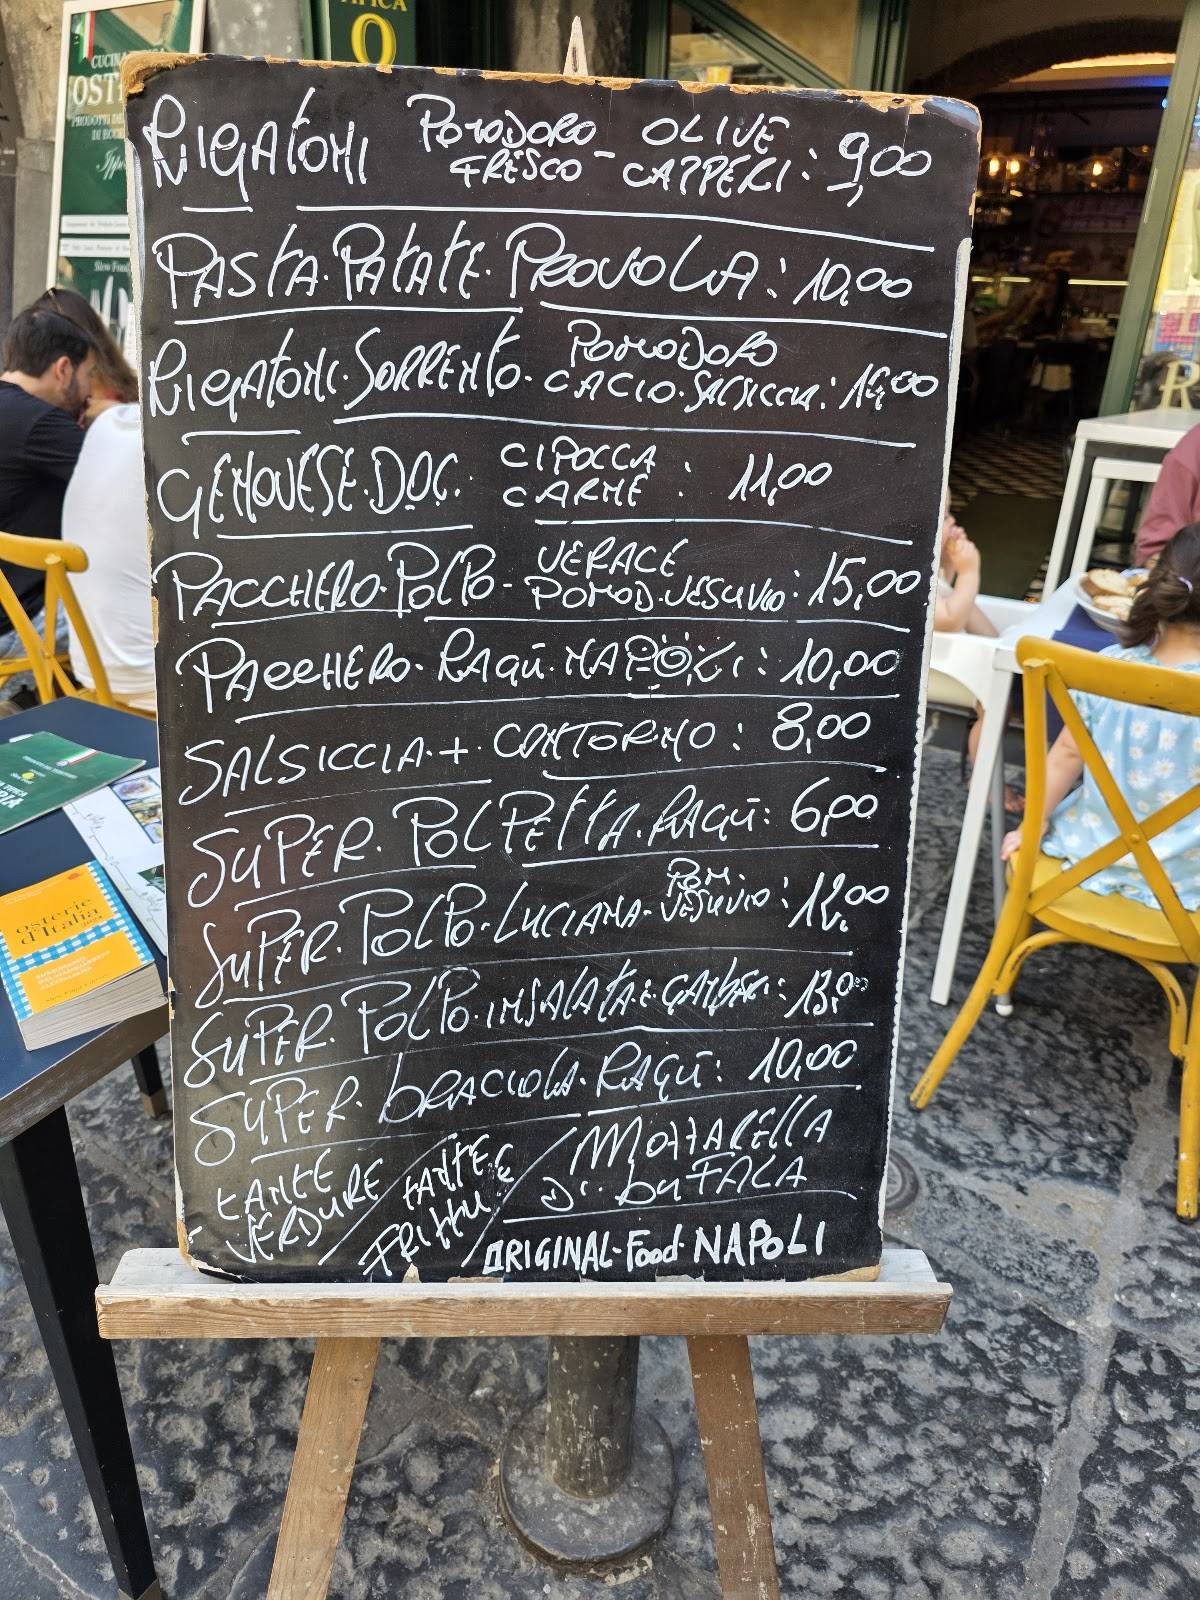 CUCINA
OST
PRODOTTI
DI ECC
TIPICA
O
RIGATONI POMODORO FRESCO - OLIVE CAPPERI : 9,00
PASTA·PATATE·PROVOLA : 10,00
RIGATONI·SORRENTO· POMODORO CACIO·SALSICCIA :
GENOVESE·DOC· CIPOLLA CARNE : 11,00
PACCHERO·POLPO- VERACE POMOD·VESUVIO : 15,00
PACCHERO·RAGÙ·NAPOLI : 10,00
SALSICCIA·+·CONTORNO : 8,00
SUPER·POLPETTA·RAGÙ: 6,00
SUPER·POLPO·LUCIANA- POM. VESUVIO : 12,00
SUPER·POLPO·INSALATA·E· : 13,00
SUPER·BRACIOLA·RAGÙ : 10,00
TANTE VERDURE
TANTE FRITTU
MOZZARELLA DI BUFALA
ORIGINAL·Food·NAPOLI
osterie d'Italia
R